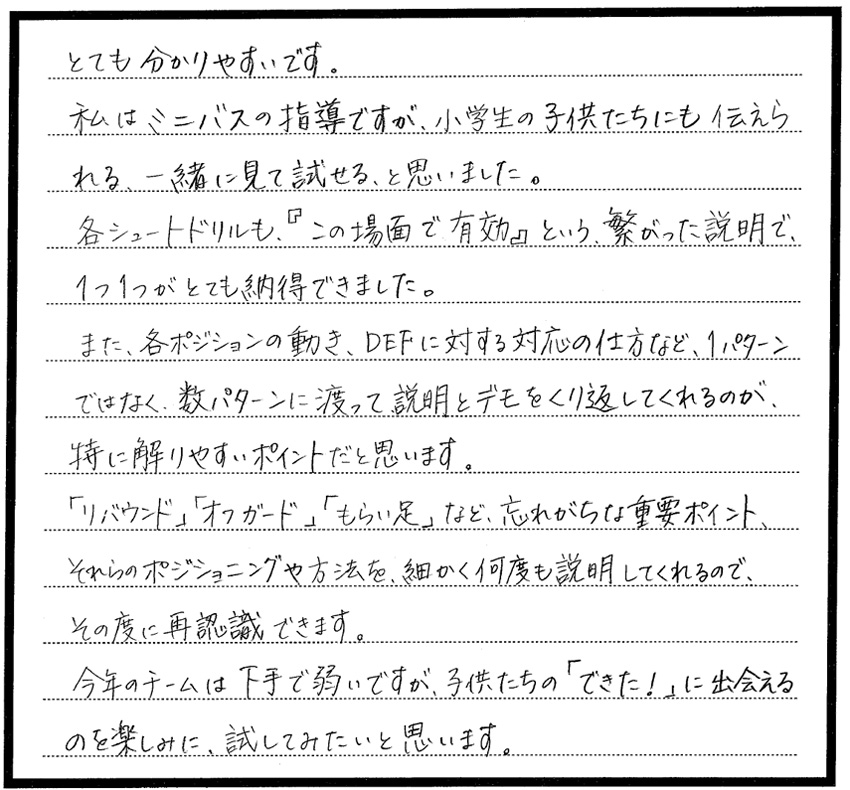 とても分かりやすいです。
私はミニバスの指導ですが、小学生の子供たちにも伝えら
れる、一緒に見て試せる、と思いました。
各シュートドリルも、『この場面で有効』という、繋がった説明で、
1つ1つがとても納得できました。
また、各ポジションの動き、DEFに対する対応の仕方など、1パターン
ではなく、数パターンに渡って説明とデモをくり返してくれるのが、
特に解りやすいポイントだと思います。
「リバウンド」「オフガード」「もらい足」など、忘れがちな重要ポイント、
それらのポジショニングや方法を、細かく何度も説明してくれるので、
その度に再認識できます。
今年のチームは下手で弱いですが、子供たちの「できた!」に出会える
のを楽しみに、試してみたいと思います。